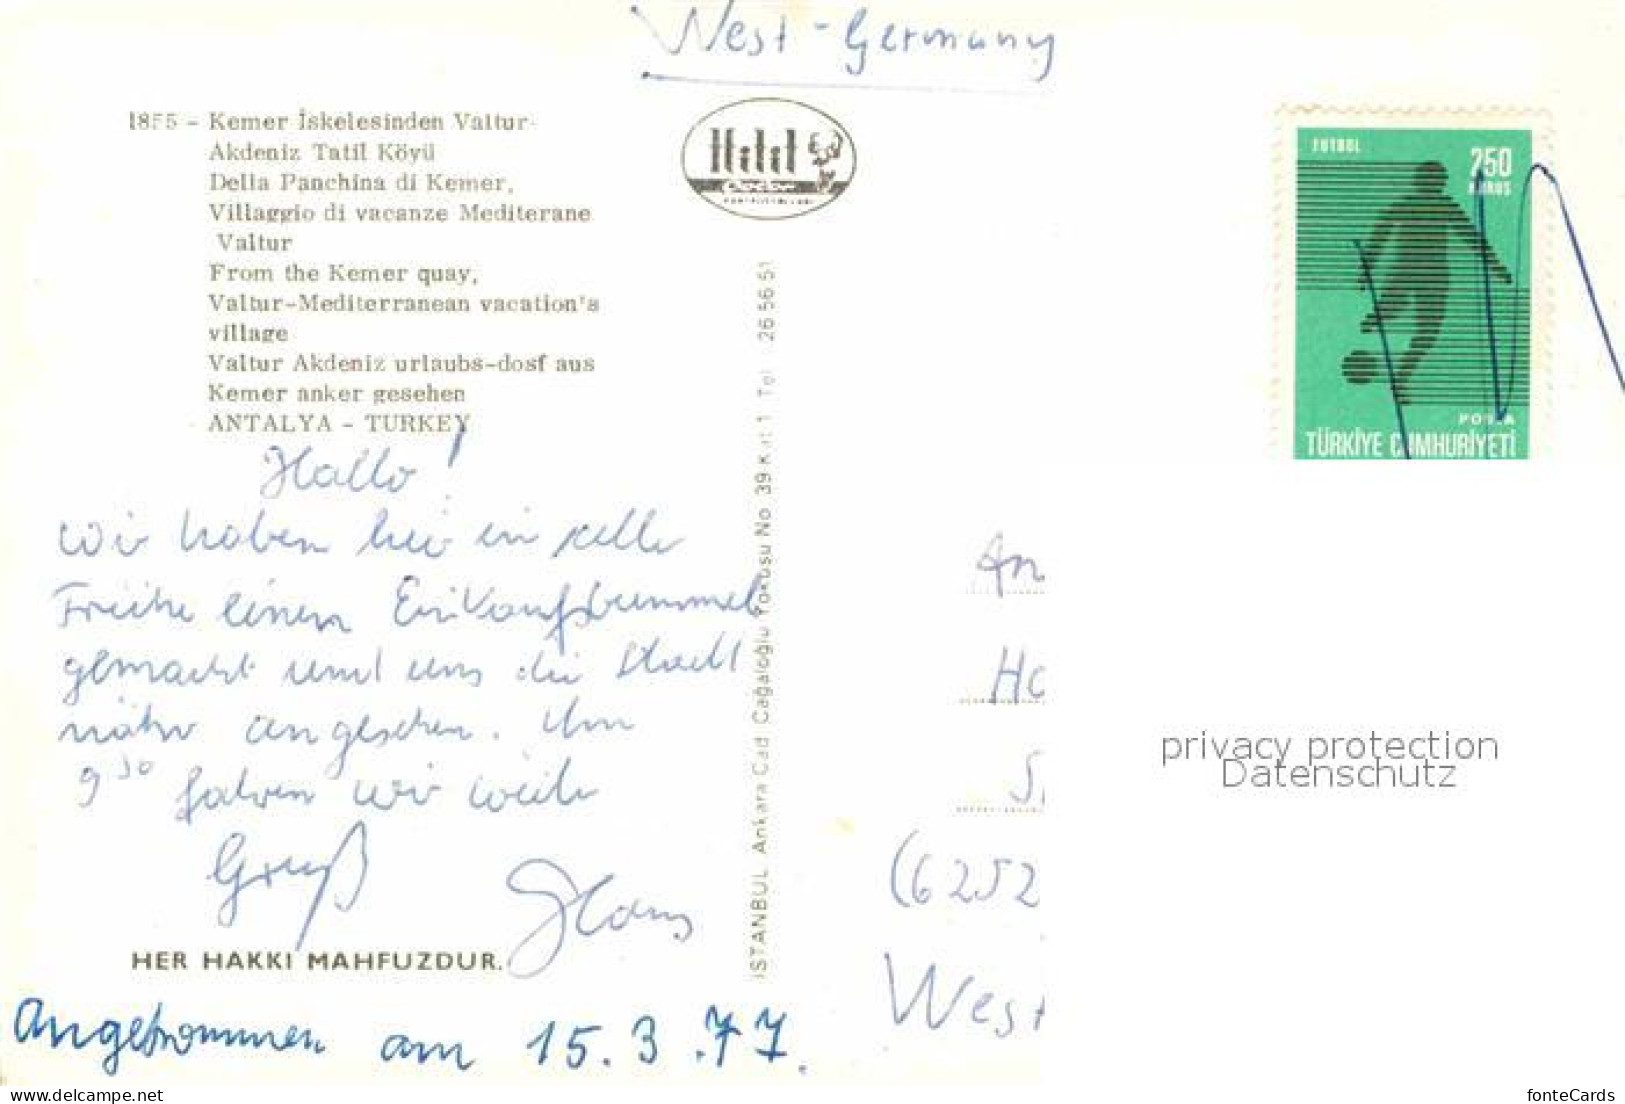 West-Germany
1855 - Kemer İskelesinden Valtur-
Akdeniz Tatil Köyü
Della Panchina di Kemer,
Villaggio di vacanze Mediterane
Valtur
From the Kemer quay,
Valtur-Mediterranean vacation's
village
Valtur Akdeniz urlaubs-dosf aus
Kemer anker gesehen
ANTALYA - TURKEY
Hallo!
wir haben hier in aller
Frühe einen Einkaufsbummel
gemacht und uns die Stadt
näher angesehen. Um
9 30 fahren wir weiter
Gruß Hans
HER HAKKI MAHFUZDUR.
Angekommen am 15.3.77.
ISTANBUL Ankara Cad Cağaloğlu Yokuşu No 39 Kat 1 Tel 26 56 51
FUTBOL
250
KURUŞ
POSTA
TÜRKİYE CUMHURİYETİ
An
Ha
(6252
West
privacy protection
Datenschutz
delcampe.net
fonteCards